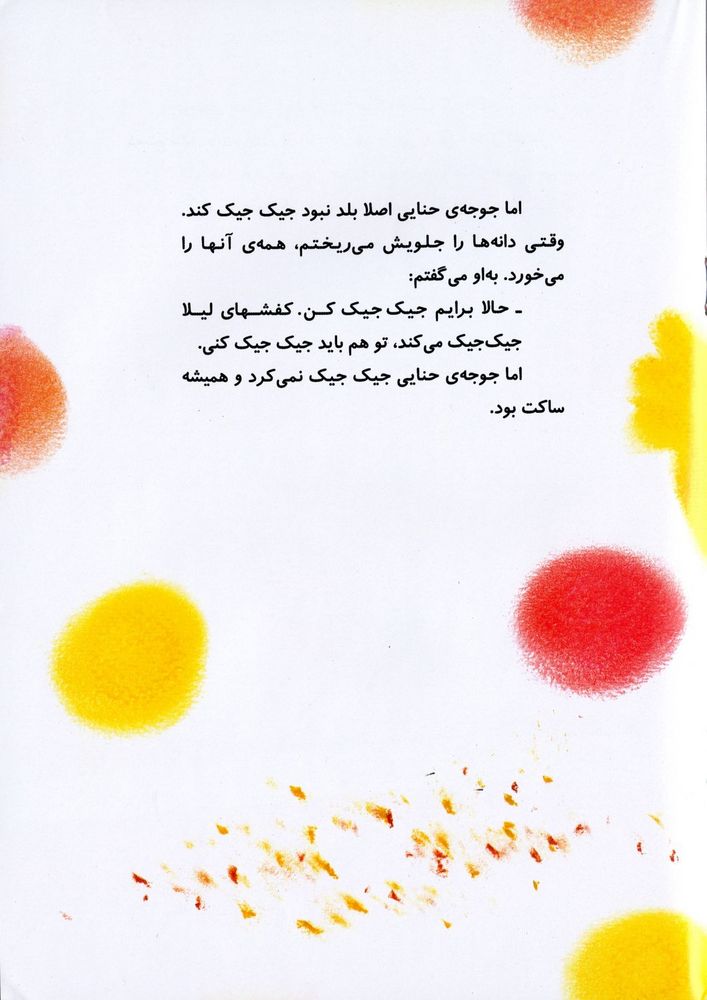 اما جوجه‌ی حنایی اصلا بلد نبود جیک جیک کند.
وقتی دانه‌ها را جلویش می‌ریختم، همه‌ی آنها را
می‌خورد. به‌او می‌گفتم:
ـ حالا برایم جیک جیک کن. کفشهای لیلا
جیک‌جیک می‌کند، تو هم باید جیک جیک کنی.
اما جوجه‌ی حنایی جیک جیک نمی‌کرد و همیشه
ساکت بود.